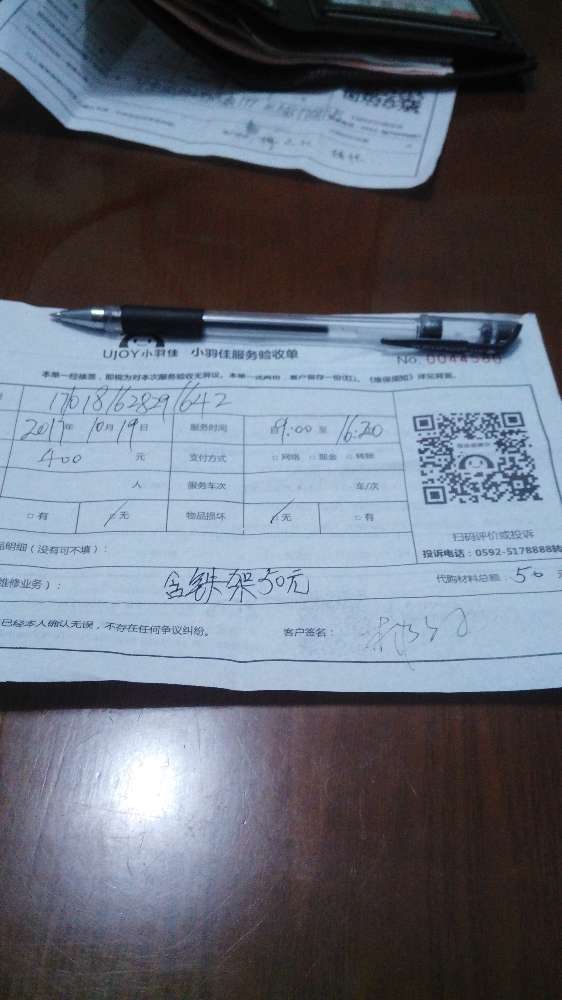 UJOY小羽佳 小羽佳服务验收单
No. 0044566
本单一经接签，即视为对本次服务验收无异议。本单一式两份，客户留存一份(红)。《维保须知》详见背面。
17018162829642
2017年10月19日 服务时间 自9:00至16:20
400元 支付方式 □网络 □现金 □转账
人 服务车次 车/次
□有 □无 物品损坏 □无 □有
品明细（没有可不填）：
扫码评价或投诉
投诉电话：0592-5178888转
维修业务）： 含铁架50元 代购材料总额：50元
已经本人确认无误，不存在任何争议纠纷。 客户签名：